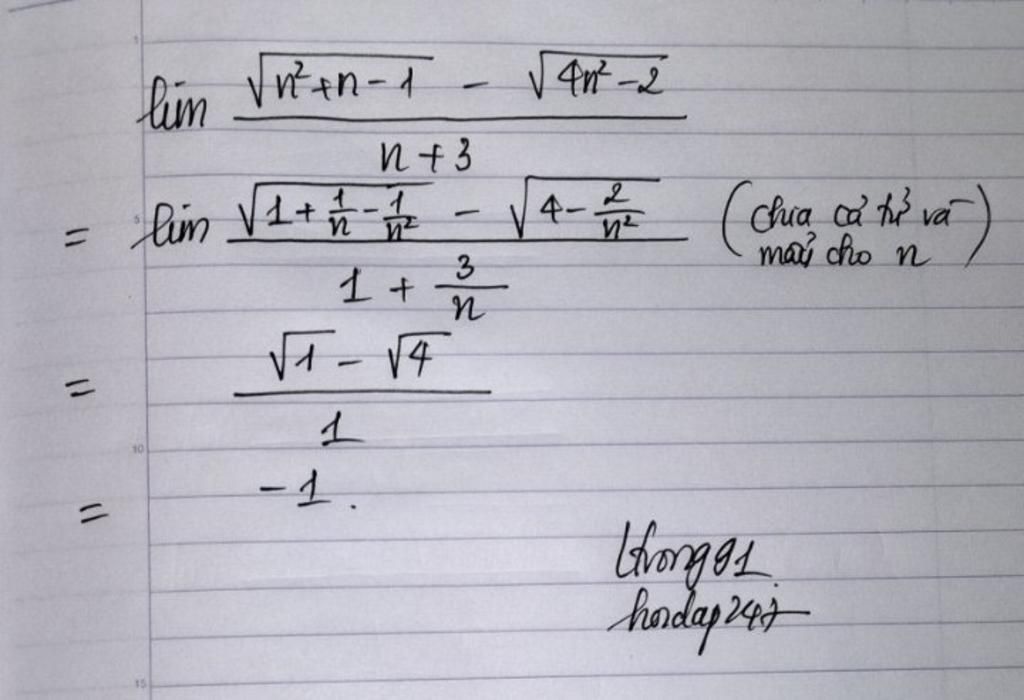 lim (√(n²+n-1) - √(4n²-2)) / (n+3)
= lim (√(1+1/n-1/n²) - √(4-2/n²)) / (1+3/n) (chia cả tử và
mẫu cho n)
= (√1 - √4) / 1
= -1.
hoidap247